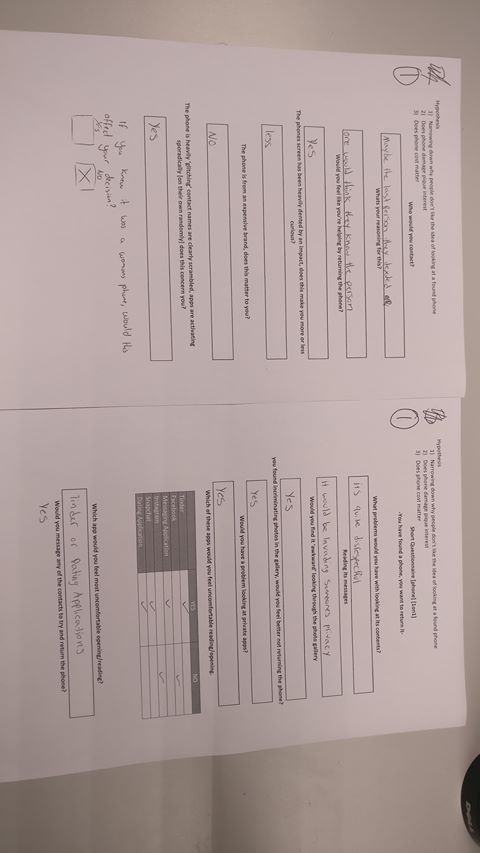 Hypothesis
1) Narrowing down why people don't like the idea of looking at a found phone
2) Does phone damage pique interest
3) Does phone cost matter
1
Who would you contact?
Maybe the last person they texted
Whats your reasoning for this?
one would think they know the person
Would you feel like you're helping by returning the phone?
Yes
The phones screen has been heavily dented by an impact, does this make you more or less
curious?
less
The phone is from an expensive brand, does this matter to you?
NO
The phone is heavily 'glitching' contact names are clearly scrambled, apps are activating
sporadically [on their own randomly] does this concern you?
Yes
If you knew it was a womans phone, would this
affect your decision?
Yes NO
Hypothesis
1) Narrowing down why people don't like the idea of looking at a found phone
2) Does phone damage pique interest
3) Does phone cost matter
1
Short Questionnaire [phone] [1on1]
-You have found a phone, you want to return it-
What problems would you have with looking at its contents?
its quite disrespectful
Reading its messages
It would be Invading someones privacy
Would you find it 'awkward' looking through the photo gallery
Yes
you found incriminating photos in the gallery, would you feel better not returning the phone?
Yes
Would you have a problem looking at private apps?
Yes
Which of these apps would you feel uncomfortable reading/opening.
YES NO
Tinder
Facebook
Messaging Application
Instagram
Snapchat
Dating Application
Which app would you feel most uncomfortable opening/reading?
Tinder or Dating Applications
Would you message any of the contacts to try and return the phone?
Yes
DELL